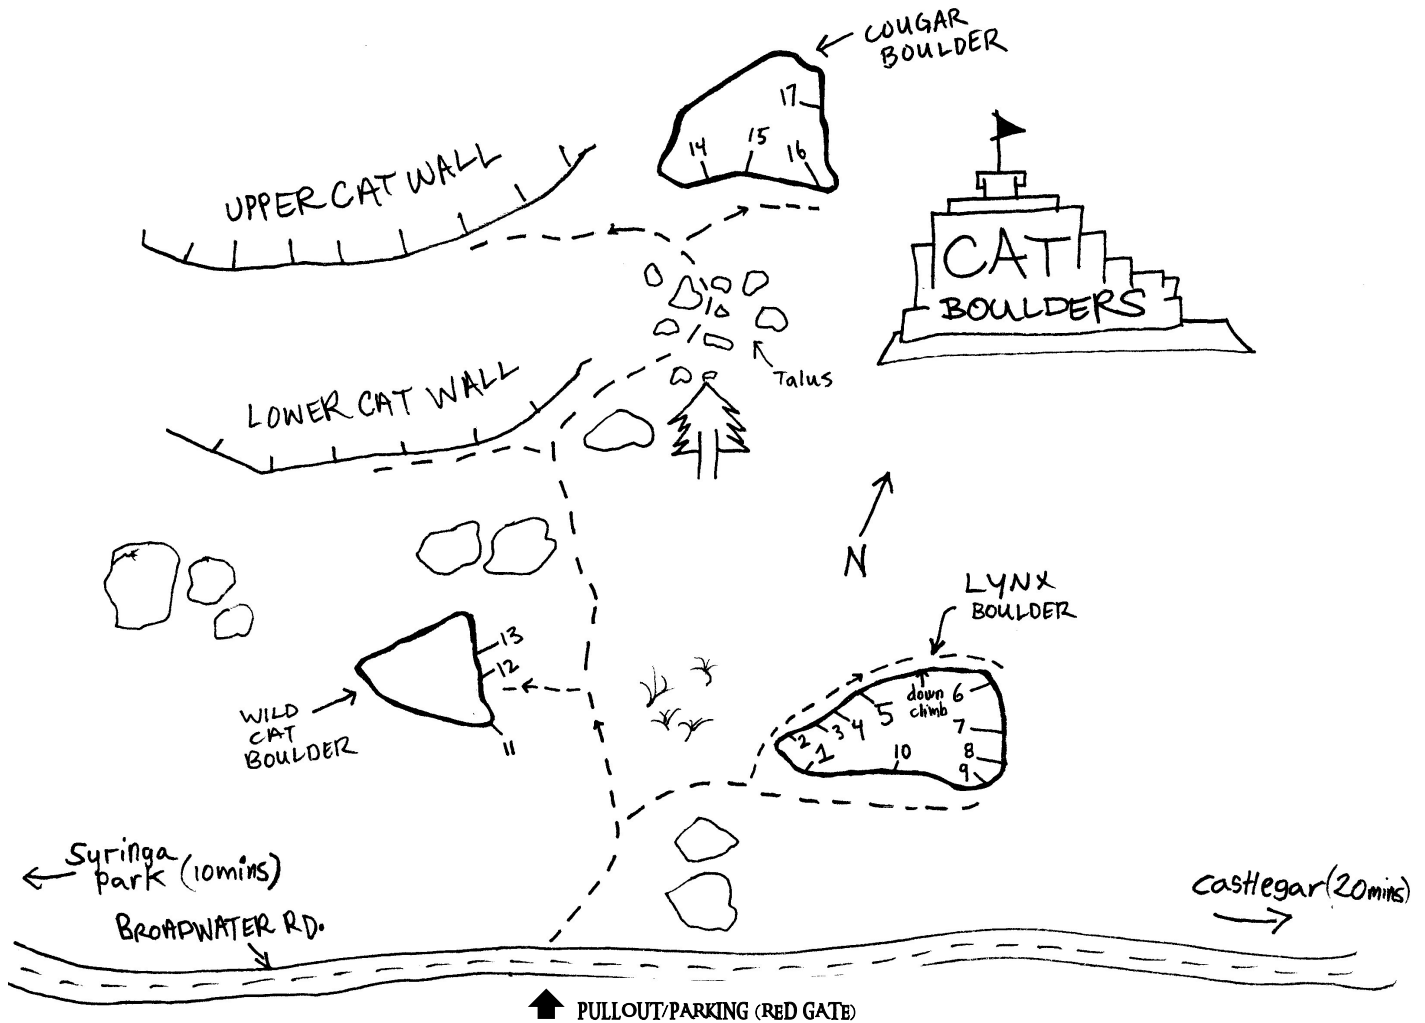 COUGAR
BOULDER
17
14
15
16
UPPER CAT WALL
CAT
BOULDERS
Talus
LOWER CAT WALL
N
LYNX
BOULDER
13
12
11
WILD
CAT
BOULDER
down
climb
6
5
4
3
2
1
7
8
9
10
Syringa
park (10mins)
Castlegar (20mins)
BROADWATER RD.
PULLOUT/PARKING (RED GATE)